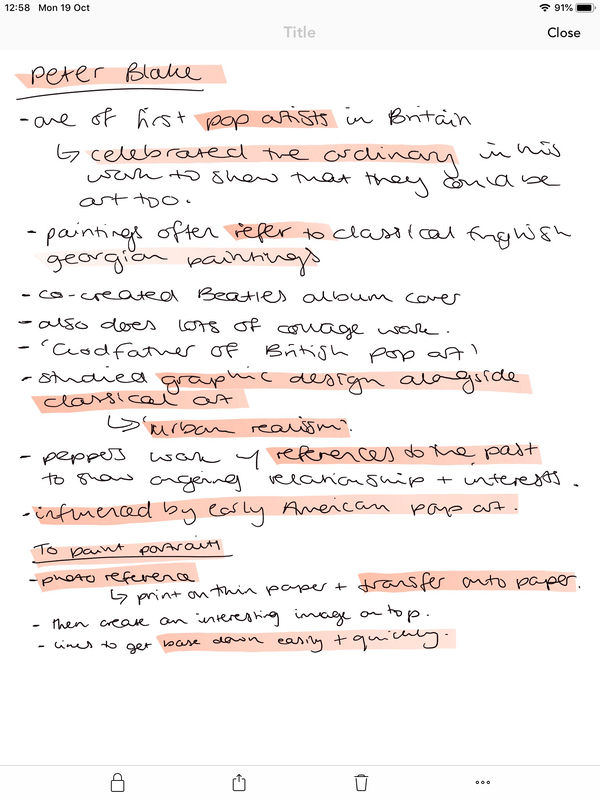 12:58 Mon 19 Oct 91%
Title Close
Peter Blake
- one of first pop artists in Britain
↳ celebrated the ordinary in his
work to show that they could be
art too.
- paintings often refer to classical English
georgian paintings
- co-created Beatles album cover
- also does lots of collage work.
- 'Godfather of British pop art'
- studied graphic design alongside
classical art
↳ 'urban realism'.
- peppers work w/ references to the past
to show ongoing relationship + interests.
- influenced by early American pop art.
To paint portraits
- photo reference
↳ print on thin paper + transfer onto paper.
- then create an interesting image on top.
- likes to get base down easily + quickly.